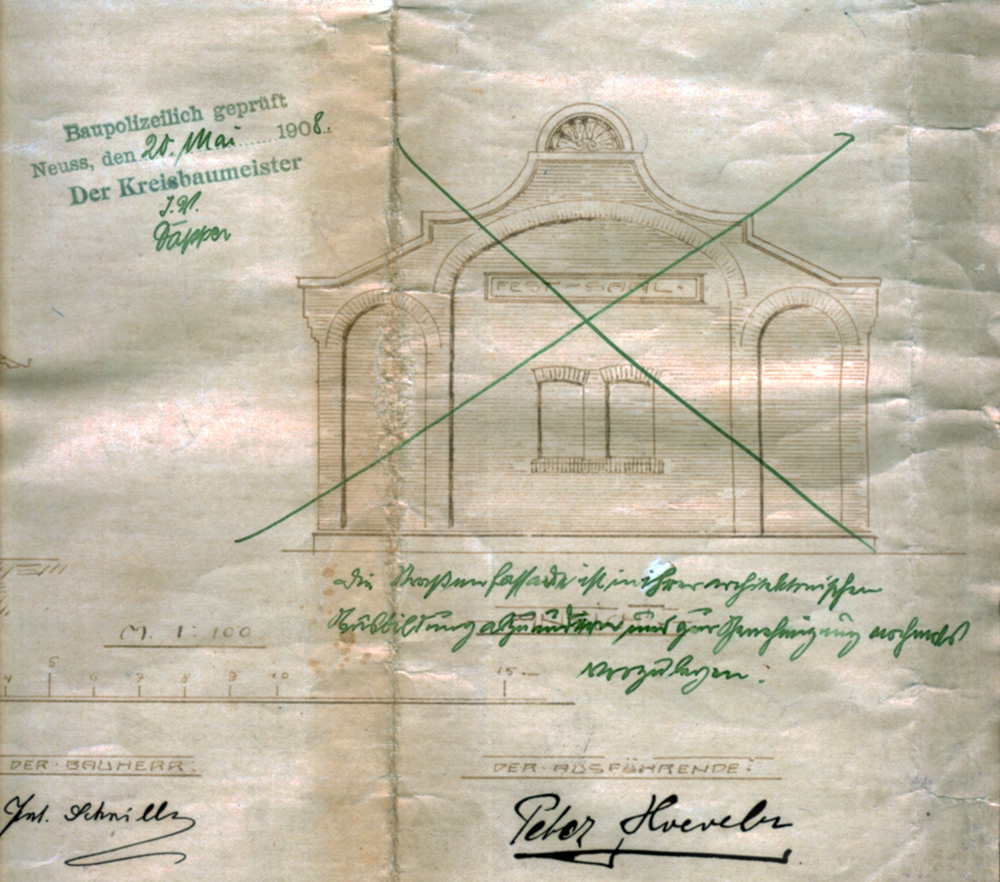 Baupolizeilich geprüft
Neuss, den 20. Mai 1908.
Der Kreisbaumeister
I.V.
FEST-SAAL.
Die Straßenfassade ist in ihrer architektonischen
Ausbildung abzuändern und zur Genehmigung nochmals
vorzulegen.
M. 1:100
5 6 7 8 9 10 15
DER·BAUHERR:
DER·AUSFÜHRENDE:
Peter